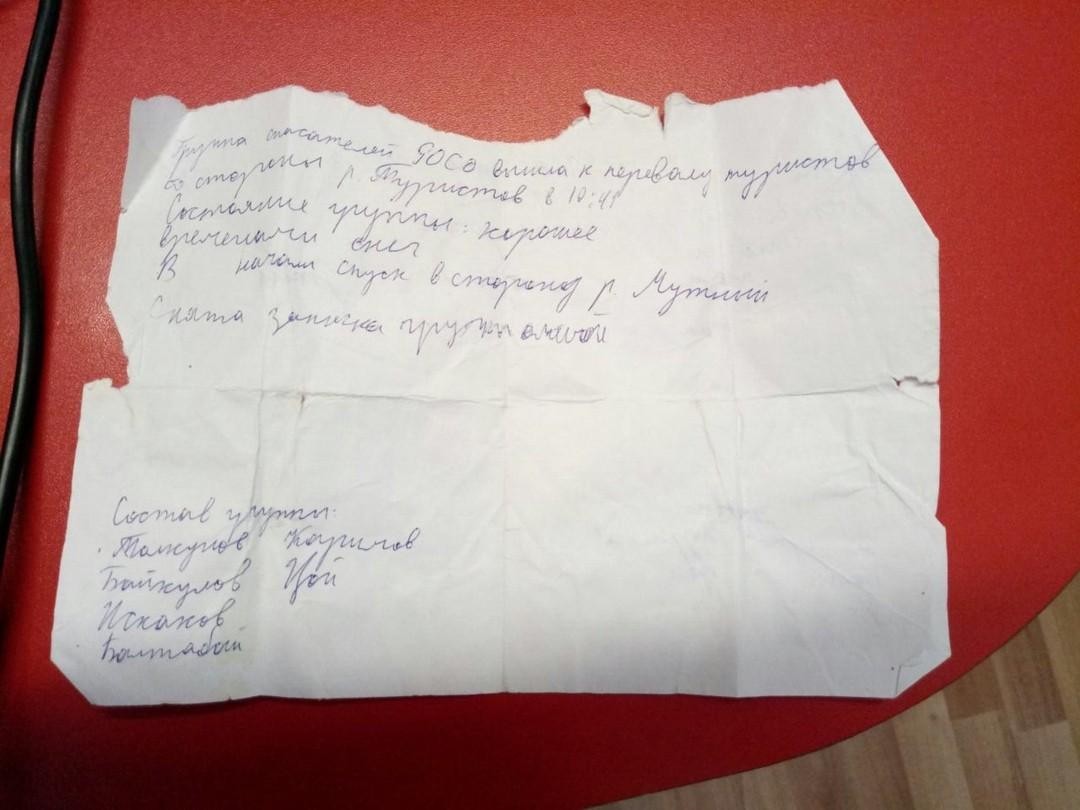 Группа спасателей РОСО вышла к перевалу туристов
со стороны р. Туристов в 10:41
Состояние группы: хорошее
временами снег
В начали спуск в сторону р. Мутный
Снята записка группы
Состав группы:
Толкунов Каримов
Байкулов Цой
Искаков
Балтабай